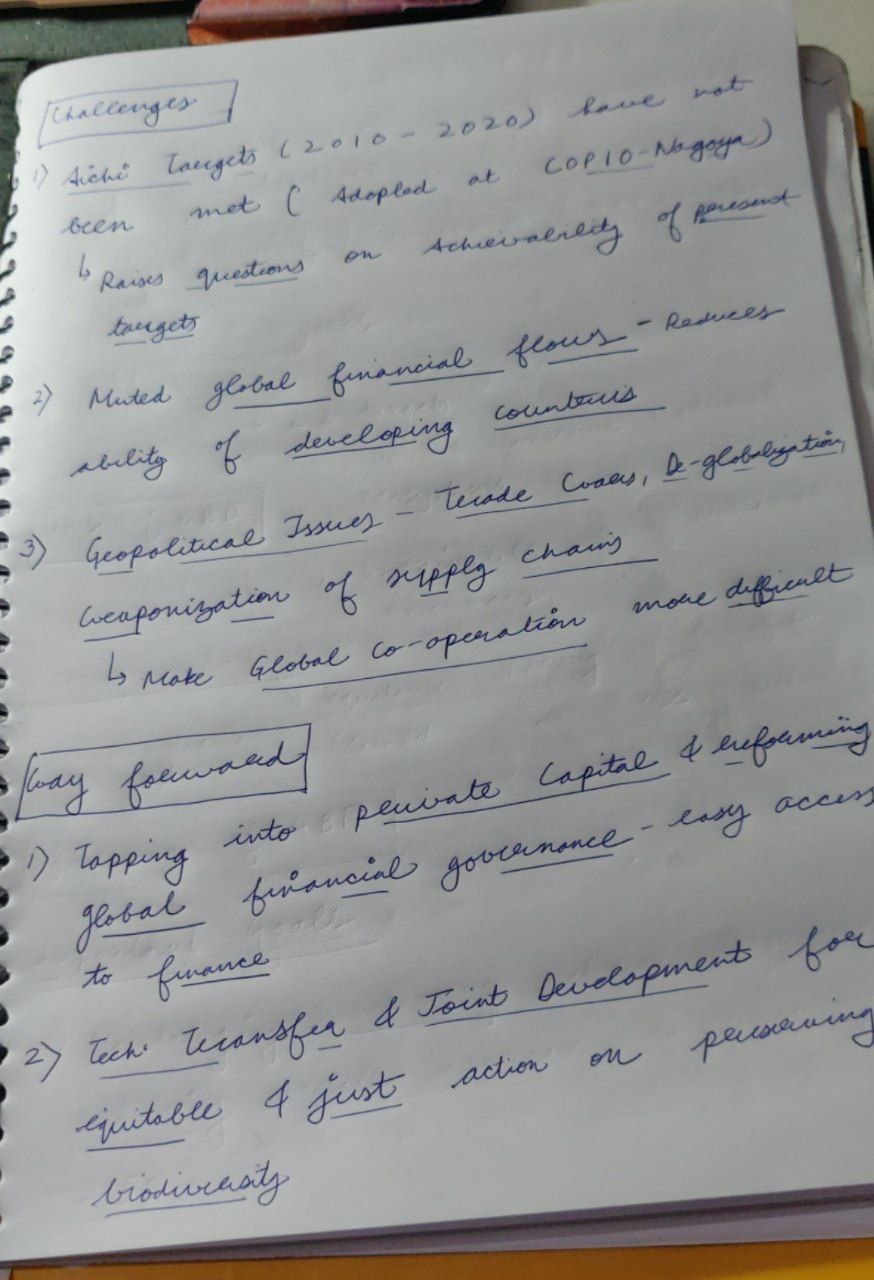 Challenges
1) Aichi Targets (2010 - 2020) have not
been met ( Adopted at COP10-Nagoya)
↳ Raises questions on Achievability of present
targets
2) Muted global financial flows - Reduces
ability of developing countries
3) Geopolitical Issues - Trade Wars, De-globalization,
Weaponization of supply chains
↳ Make Global Co-operation more difficult
Way forward
1) Tapping into private Capital & reforming
global financial governance - easy access
to finance
2) Tech. Transfer & Joint Development for
equitable & just action on preserving
biodiversity